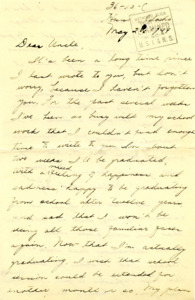 36-10-C
May 2
Dear Uncle,
It's been a long time since
I last wrote to you, but don't
worry because I haven't forgotten
you. For the past several weeks
I've been so busy with my school
work that I couldn't find enough
time to write to you. In about
two weeks I'll be graduated,
with a feeling of happiness and
sadness: happy to be graduating
from school after twelve years
and sad that I won't be
seeing all those familiar faces
again. Now that I'm actually
graduating I wish that school
could be extended for
another month or so. My plans